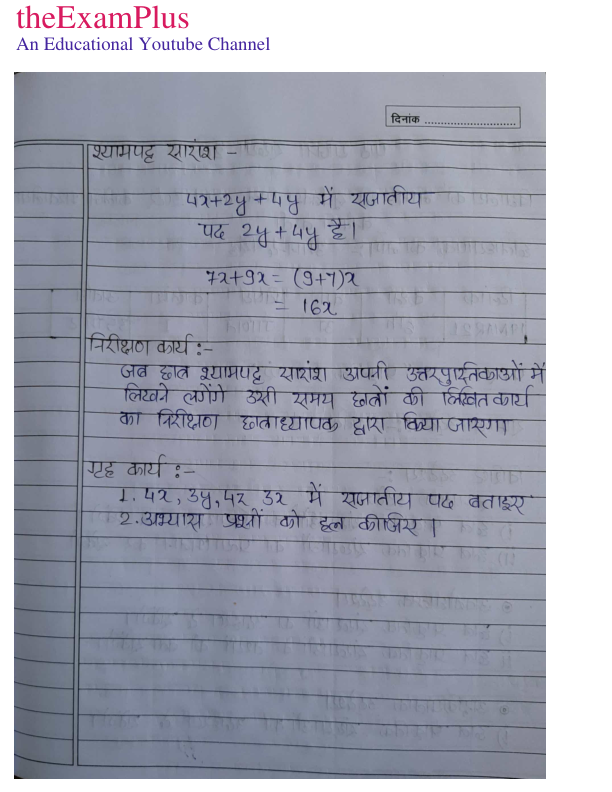 theExamPlus
An Educational Youtube Channel
दिनांक ..............................
श्यामपट्ट सारांश -
4x+2y+4y में सजातीय
पद 2y+4y है।
7x+9x = (9+7)x
= 16x
निरीक्षण कार्य :-
जब छात्र श्यामपट्ट सारांश अपनी उत्तरपुस्तिकाओं में
लिखने लगेंगे उसी समय छात्रों की लिखित कार्य
का निरीक्षण छात्राध्यापक द्वारा किया जाएगा
गृह कार्य :-
1. 4x, 3y, 4z 3x में सजातीय पद बताइए
2. अभ्यास प्रश्नों को हल कीजिए।